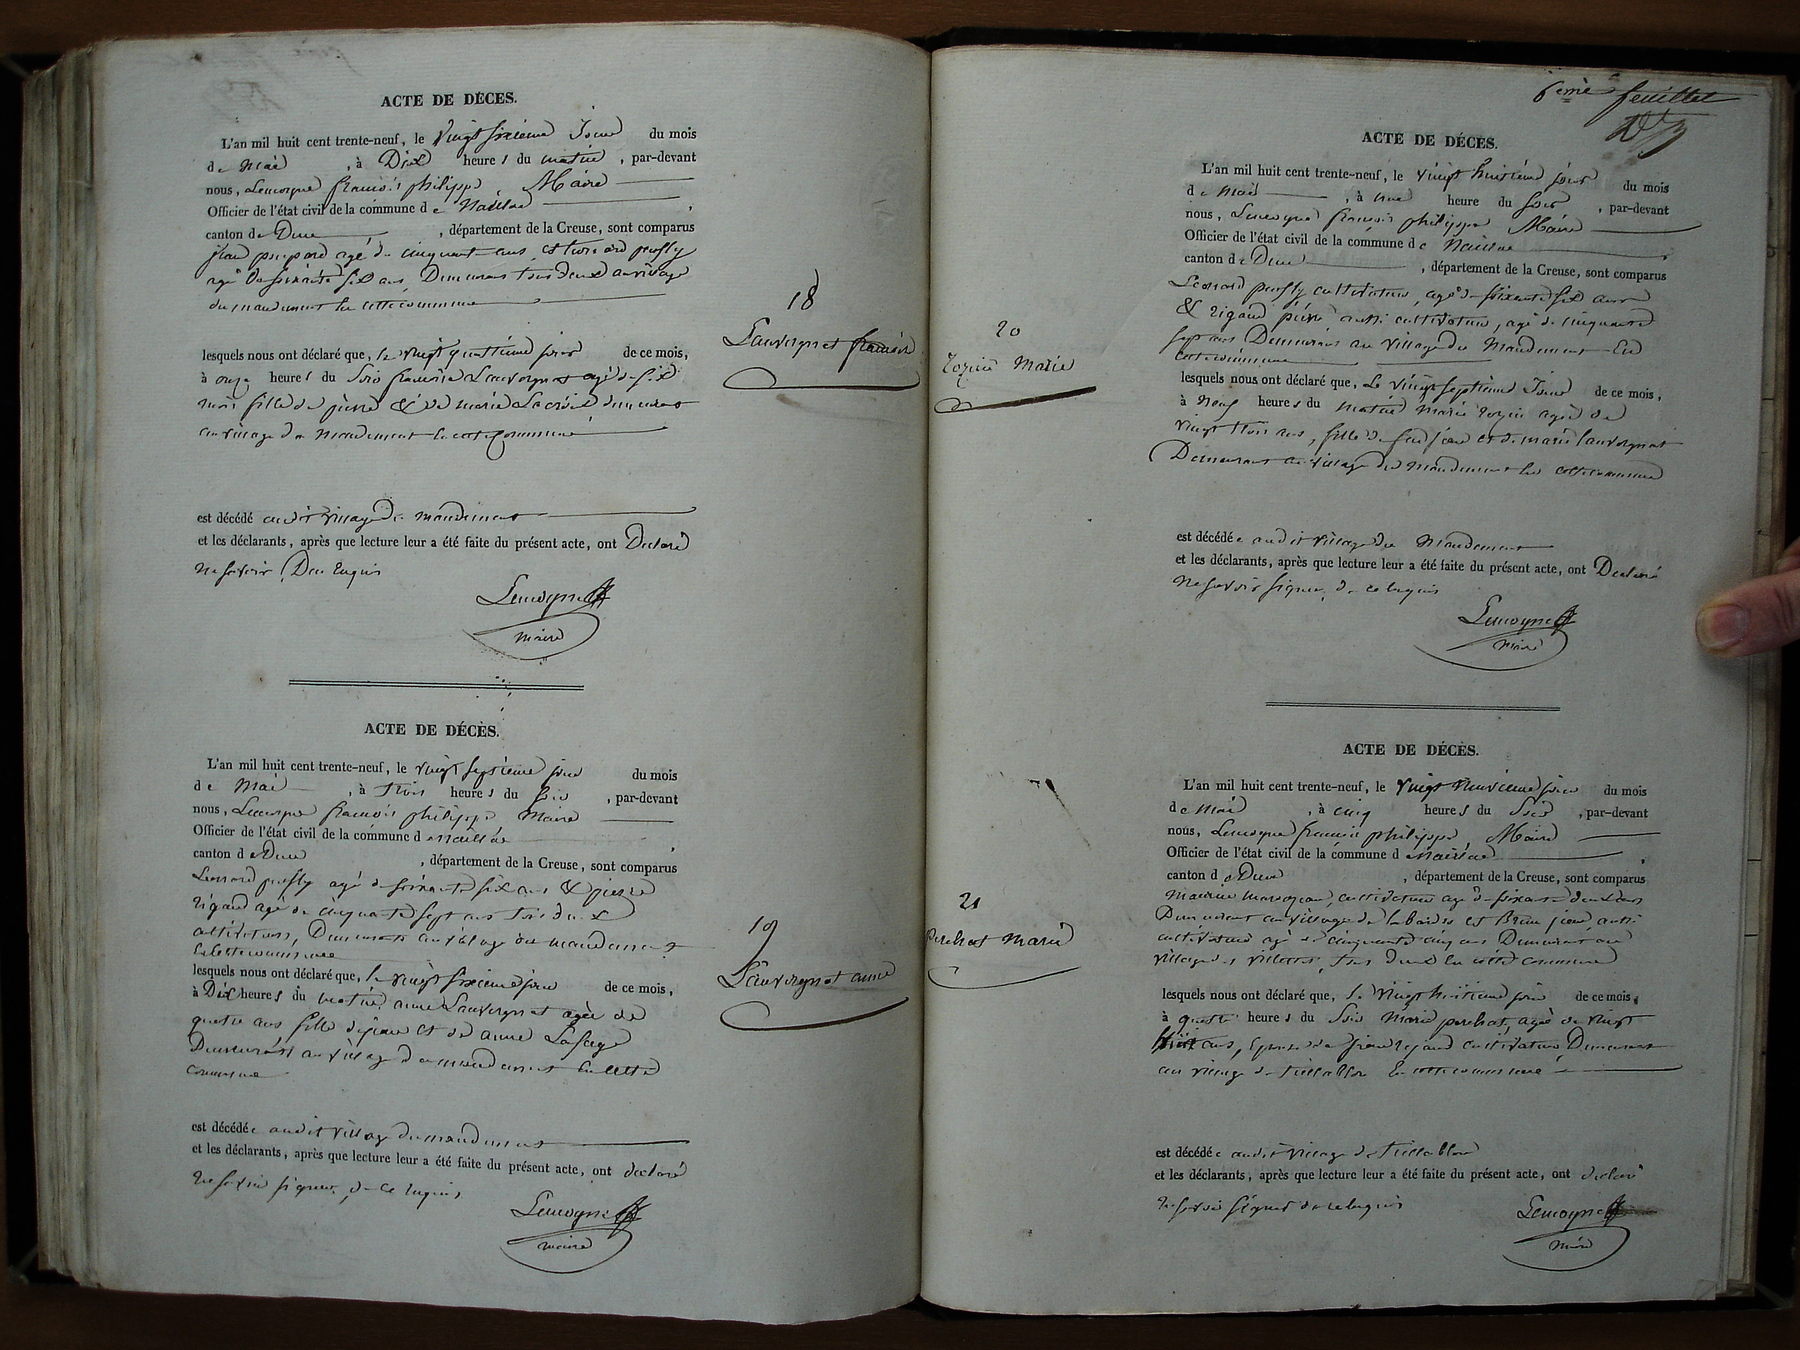 ACTE DE DÉCES.
L'an mil huit cent trente-neuf, le vingt sixieme Jour du mois
de Mai , à Dix heures du matin , par-devant
nous, Lemoyne françois philippe Maire
Officier de l'état civil de la commune de Naillac ,
canton de Dun , département de la Creuse, sont comparus
agé de cinquante ans, et Léonard
agé de soixante six ans, Demeurant tous deux au village
du mandement en cette commune
lesquels nous ont déclaré que, le vingt quatrieme jour de ce mois,
à onze heures du soir françoise Lauvergnat agé de six
mois fille de pierre & de marie Lacroix demeurant
au village du mandement en cette Commune
est décédé audit village du mandement
et les déclarants, après que lecture leur a été faite du présent acte, ont Declaré
ne savoir Du Enquis
Lemoyne
maire
18
Lauvergnat françoise
ACTE DE DÉCÈS.
L'an mil huit cent trente-neuf, le vingt septieme jour du mois
de Mai , à trois heures du soir , par-devant
nous, Lemoyne françois philippe Maire
Officier de l'état civil de la commune de Naillac ,
canton de Dun , département de la Creuse, sont comparus
Leonard agé de soixante six ans & pierre
rigaud agé de cinquante sept ans tous deux
cultivateurs, Demeurants au village du mandement
en cette commune
lesquels nous ont déclaré que, le vingt sixieme jour de ce mois,
à Dix heures du matin anne Lauvergnat agée de
quatre ans fille de jean et de anne
Demeurant au village du mandement en cette
commune
est décédée audit village du mandement
et les déclarants, après que lecture leur a été faite du présent acte, ont declaré
ne savoir signer, de ce Enquis
Lemoyne
maire
19
Lauvergnat anne
6eme feuillet
ACTE DE DÉCÈS.
L'an mil huit cent trente-neuf, le vingt huitieme jour du mois
de Mai , à une heure du soir , par-devant
nous, Lemoyne françois philippe Maire
Officier de l'état civil de la commune de Naillac
canton de Dun , département de la Creuse, sont comparus
Léonard cultivateur, agé de soixante six ans
& rigaud pierre aussi cultivateur, agé de cinquante
sept ans Demeurant au village du Mandement En
cette commune
lesquels nous ont déclaré que, Le vingt septieme Jour de ce mois,
à Neuf heures du matin marie agée de
vingt trois ans, fille de feu jean et de marie Lauvergnat
Demeurant au village du mandement en cette commune
est décédée audit village du Mandement
et les déclarants, après que lecture leur a été faite du présent acte, ont Declaré
ne savoir signer, de ce Enquis
Lemoyne
Maire
20
Marie
ACTE DE DÉCÈS.
L'an mil huit cent trente-neuf, le vingt Neuvieme jour du mois
de Mai , à cinq heures du Soir , par-devant
nous, Lemoyne françois philippe Maire
Officier de l'état civil de la commune de Naillac ,
canton de Dun , département de la Creuse, sont comparus
Maurice cultivateur agé de soixante deux ans
Demeurant au village de et Brun jean aussi
cultivateur agé de cinquante cinq ans Demeurant au
village des villettes, tous deux en cette commune
lesquels nous ont déclaré que, le vingt huitieme jour de ce mois,
à quatre heures du Soir Marie perchat, agée de vingt
huit ans, Epouse de cultivateur Demeurant
au village de en cette commune
est décédée audit village de
et les déclarants, après que lecture leur a été faite du présent acte, ont declaré
ne savoir signer de ce enquis
Lemoyne
maire
21
perchat Marie